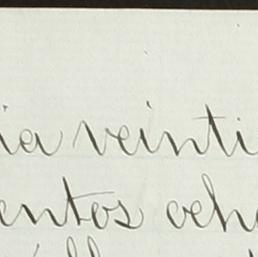 ia veinti
entos och